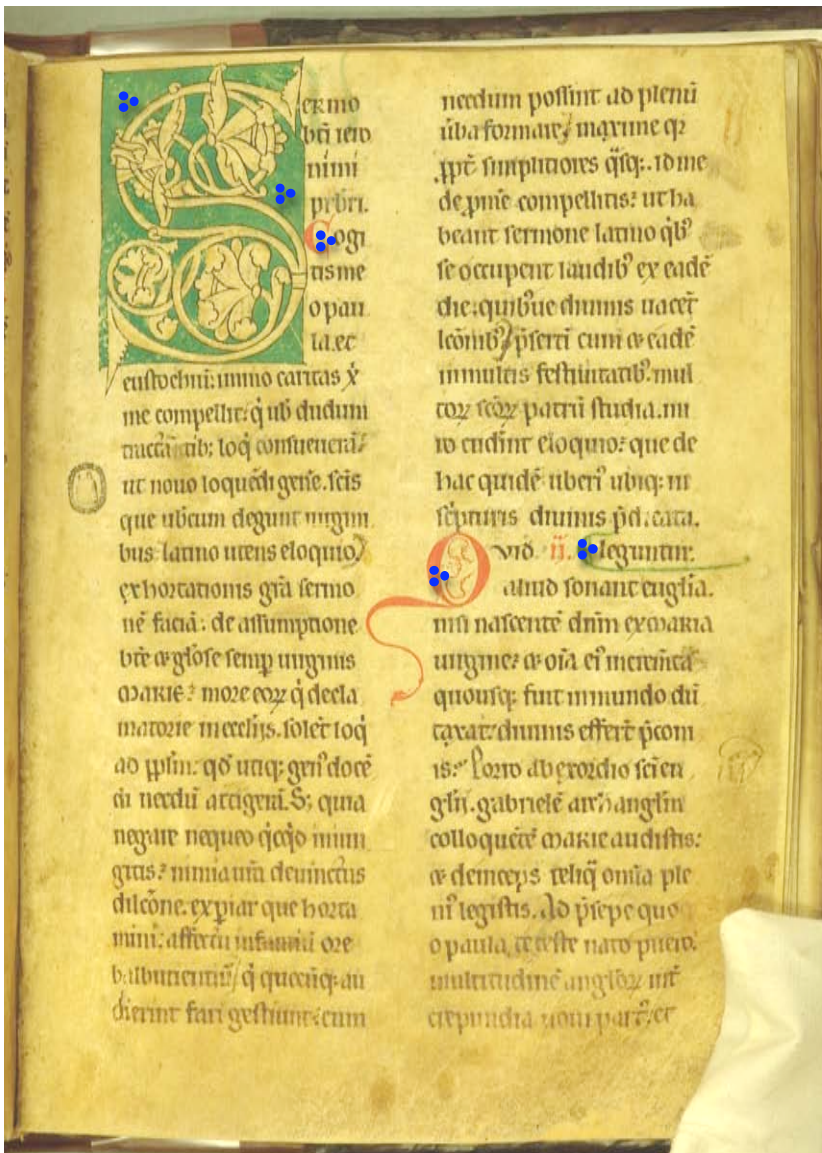 Sermo
bt̄i iero
nimi
pr̄bri.
Cogi
tis me
o pau
la. et
eustochiū: immo caritas xp̄i
me compellit: q̇ ub̄ dudum
tractatib; loq̇ consueuerā:
ut nouo loquēdi geñe. scīs
que uobiscum degunt uirgini
bus latino utens eloquio
exhortationis grā sermo
nē faciā. de assumptione
btē et glōse semp uirginis
marie: more eorꝝ q̇ decla
matorie in ecclijs. solēt loq̇
ad ꝓplm̄: qd̄ utiq; genꝰ docē
di necdū attigerā. S; quia
negare nequeo q̇cq̇d iniun
gitis: nimia urā deuinctus
dilc̄one. expiar que horta
mini: affectu infantiū ore
balbutientiū q̇ quecūq; au
dierint fari gestiunt: cum
necdum possint ad plenū
ūba formare/ maxime qꝛ
ꝓpt̄ simplitiores q̄sq;. id me
deprom̄e compellitis: ut ha
beant sermone latino q̇bꝰ
se occupent laudibꝰ ex eadē
die: quibue diuinis uacēt
lc̄ōnibꝰ/ p̄serti cum et eadē
in multis festiuitatibꝰ. mul
torꝝ sc̄orꝝ patrū studia. mi
ro ediderint eloquio: que de
hac quidē uberiꝰ ubiq; in
sc̄pturis diuinis p̄dicata.
Quid ij. leguntur:
aliud sonant euglīa.
nisi nascentē dn̄m ex maria
uirgine: et oīa eiꝰ incremēta
quousq; fuit in mundo dū
taxat: diuinis effert p̄coni
is: Porro ab exordio sc̄i eu
glīi. gabrielē archanglm̄
colloquētē marie audistis:
et deinceps reliq̄ omīa ple
niꝰ legistis. Ad p̄sepe quoq;
o paula, celeste nato puero:
multitudinē anglorꝝ int̄
crepundia noui partꝰ, et